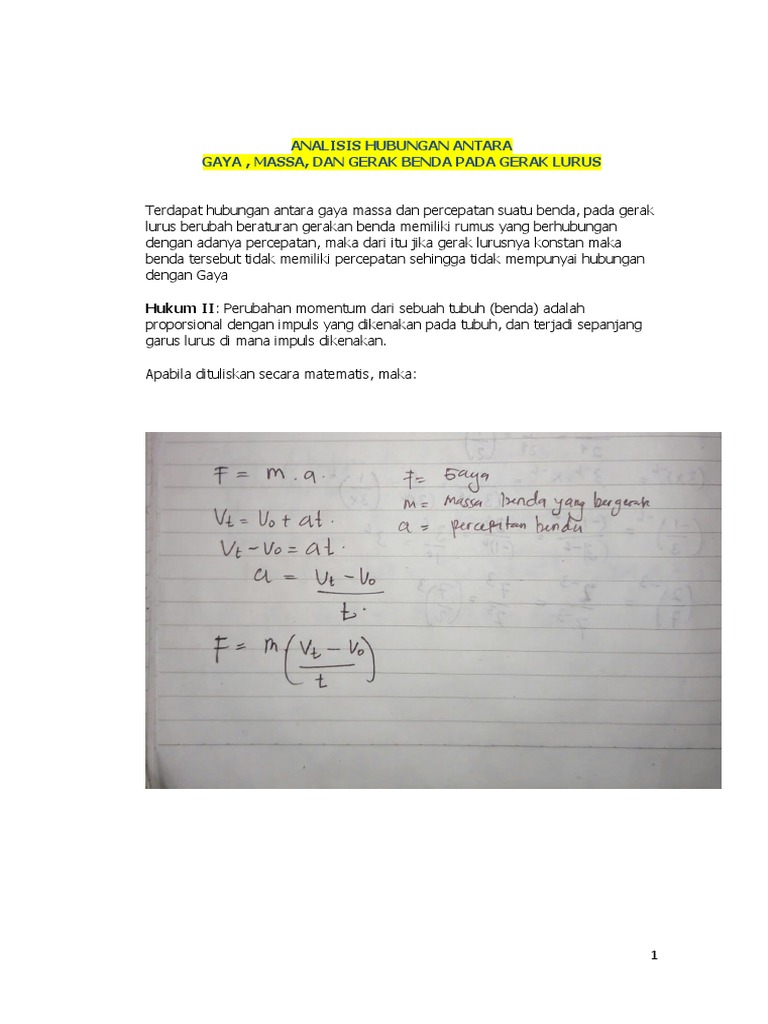 ANALISIS HUBUNGAN ANTARA
GAYA , MASSA, DAN GERAK BENDA PADA GERAK LURUS
Terdapat hubungan antara gaya massa dan percepatan suatu benda, pada gerak
lurus berubah beraturan gerakan benda memiliki rumus yang berhubungan
dengan adanya percepatan, maka dari itu jika gerak lurusnya konstan maka
benda tersebut tidak memiliki percepatan sehingga tidak mempunyai hubungan
dengan Gaya
Hukum II: Perubahan momentum dari sebuah tubuh (benda) adalah
proporsional dengan impuls yang dikenakan pada tubuh, dan terjadi sepanjang
garus lurus di mana impuls dikenakan.
Apabila dituliskan secara matematis, maka:
F = m . a.
Vt = Vo + at.
Vt - Vo = at.
a = Vt - Vo / t.
F = m (Vt - Vo / t)
F = Gaya
m = Massa benda yang bergerak
a = percepatan benda
1